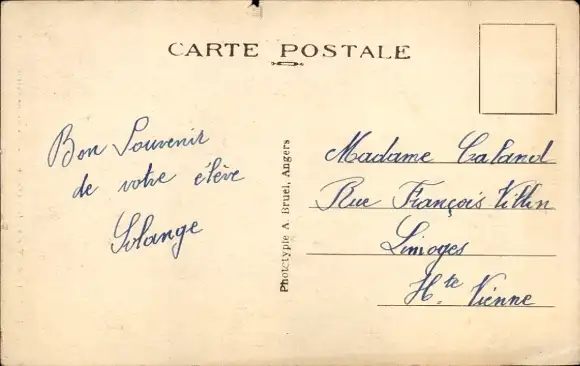 CARTE POSTALE
Bon Souvenir
de votre élève
Solange
Phototypie A. Bruel, Angers
Madame Caland
Rue François
Limoges
Hte Vienne